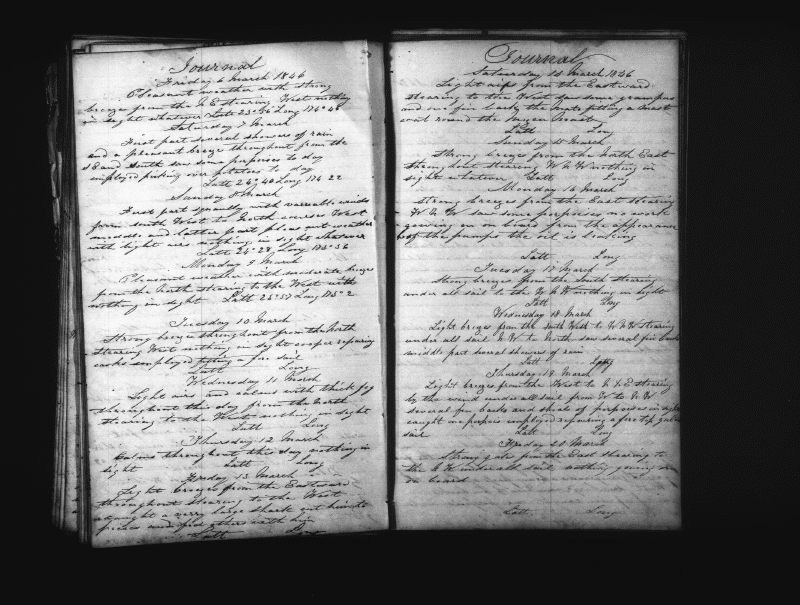 Journal
Friday 6 March 1846
Pleasant weather with strong
breeze from the N E stearing West nothing
in sight whatever Latt 23°56 Long 174°48
Saturday 7 March
First part several showers of rain
and a pleasant breeze throughout from the
S E and South saw some porpoises to day
employed picking over potatoes to day
Latt 24°40 Long 174 22
Sunday 8 March
First part squally with variable winds
from South West to North course West
middle and latter part pleasant weather
with light airs nothing in sight whatever
Latt 24°28 Long 173°36
Monday 9 March
Pleasant weather with moderate breeze
from the North stearing to the West with
nothing in sight Latt 23°57 Long 173°2
Tuesday 10 March
Strong breeze throughout from the North
stearing West nothing in sight cooper repairing
casks employed fixing a fore sail
Latt Long
Wednesday 11 March
Light airs and calms with thick fog
throughout this day from the North
stearing to the West nothing in sight
Latt Long
Thursday 12 March
Calms throughout this day nothing in
sight Latt Long
Friday 13 March
Light breeze from the Eastward
throughout stearing to the West
caught a very large shark cut him to
pieces and fed others with him
Latt Long
Journal
Saturday 14 March 1846
Light airs from the Eastward
stearing to the West saw some grampus
and one fin back the mate fitting a mast
coat round the mizen mast
Latt Long
Sunday 15 March
Strong breezes from the North East
throughout stearing W N W nothing in
sight whatever Latt Long
Monday 16 March
Strong breezes from the East stearing
W N W saw some porpoises no work
gowing on on board from the appearance
of the pumps the oil is leaking
Latt Long
Tuesday 17 March
Strong breezes from the South stearing
under all sail to the W N W nothing in sight
Latt Long
Wednesday 18 March
Light breezes from the South West to W N W stearing
under all sail N W to North saw several fin backs
middle part several showers of rain
Latt Long
Thursday 19 March
Light breeze from the West to N N E stearing
by the wind under all sail from W to N W
several fin backs and shoals of porpoises in sight
caught one porpois employed repairing a fore top gallant
sail Latt Long
Friday 20 March
Strong gales from the East stearing to
the N W under all sail nothing gowing on
on board
Latt Long